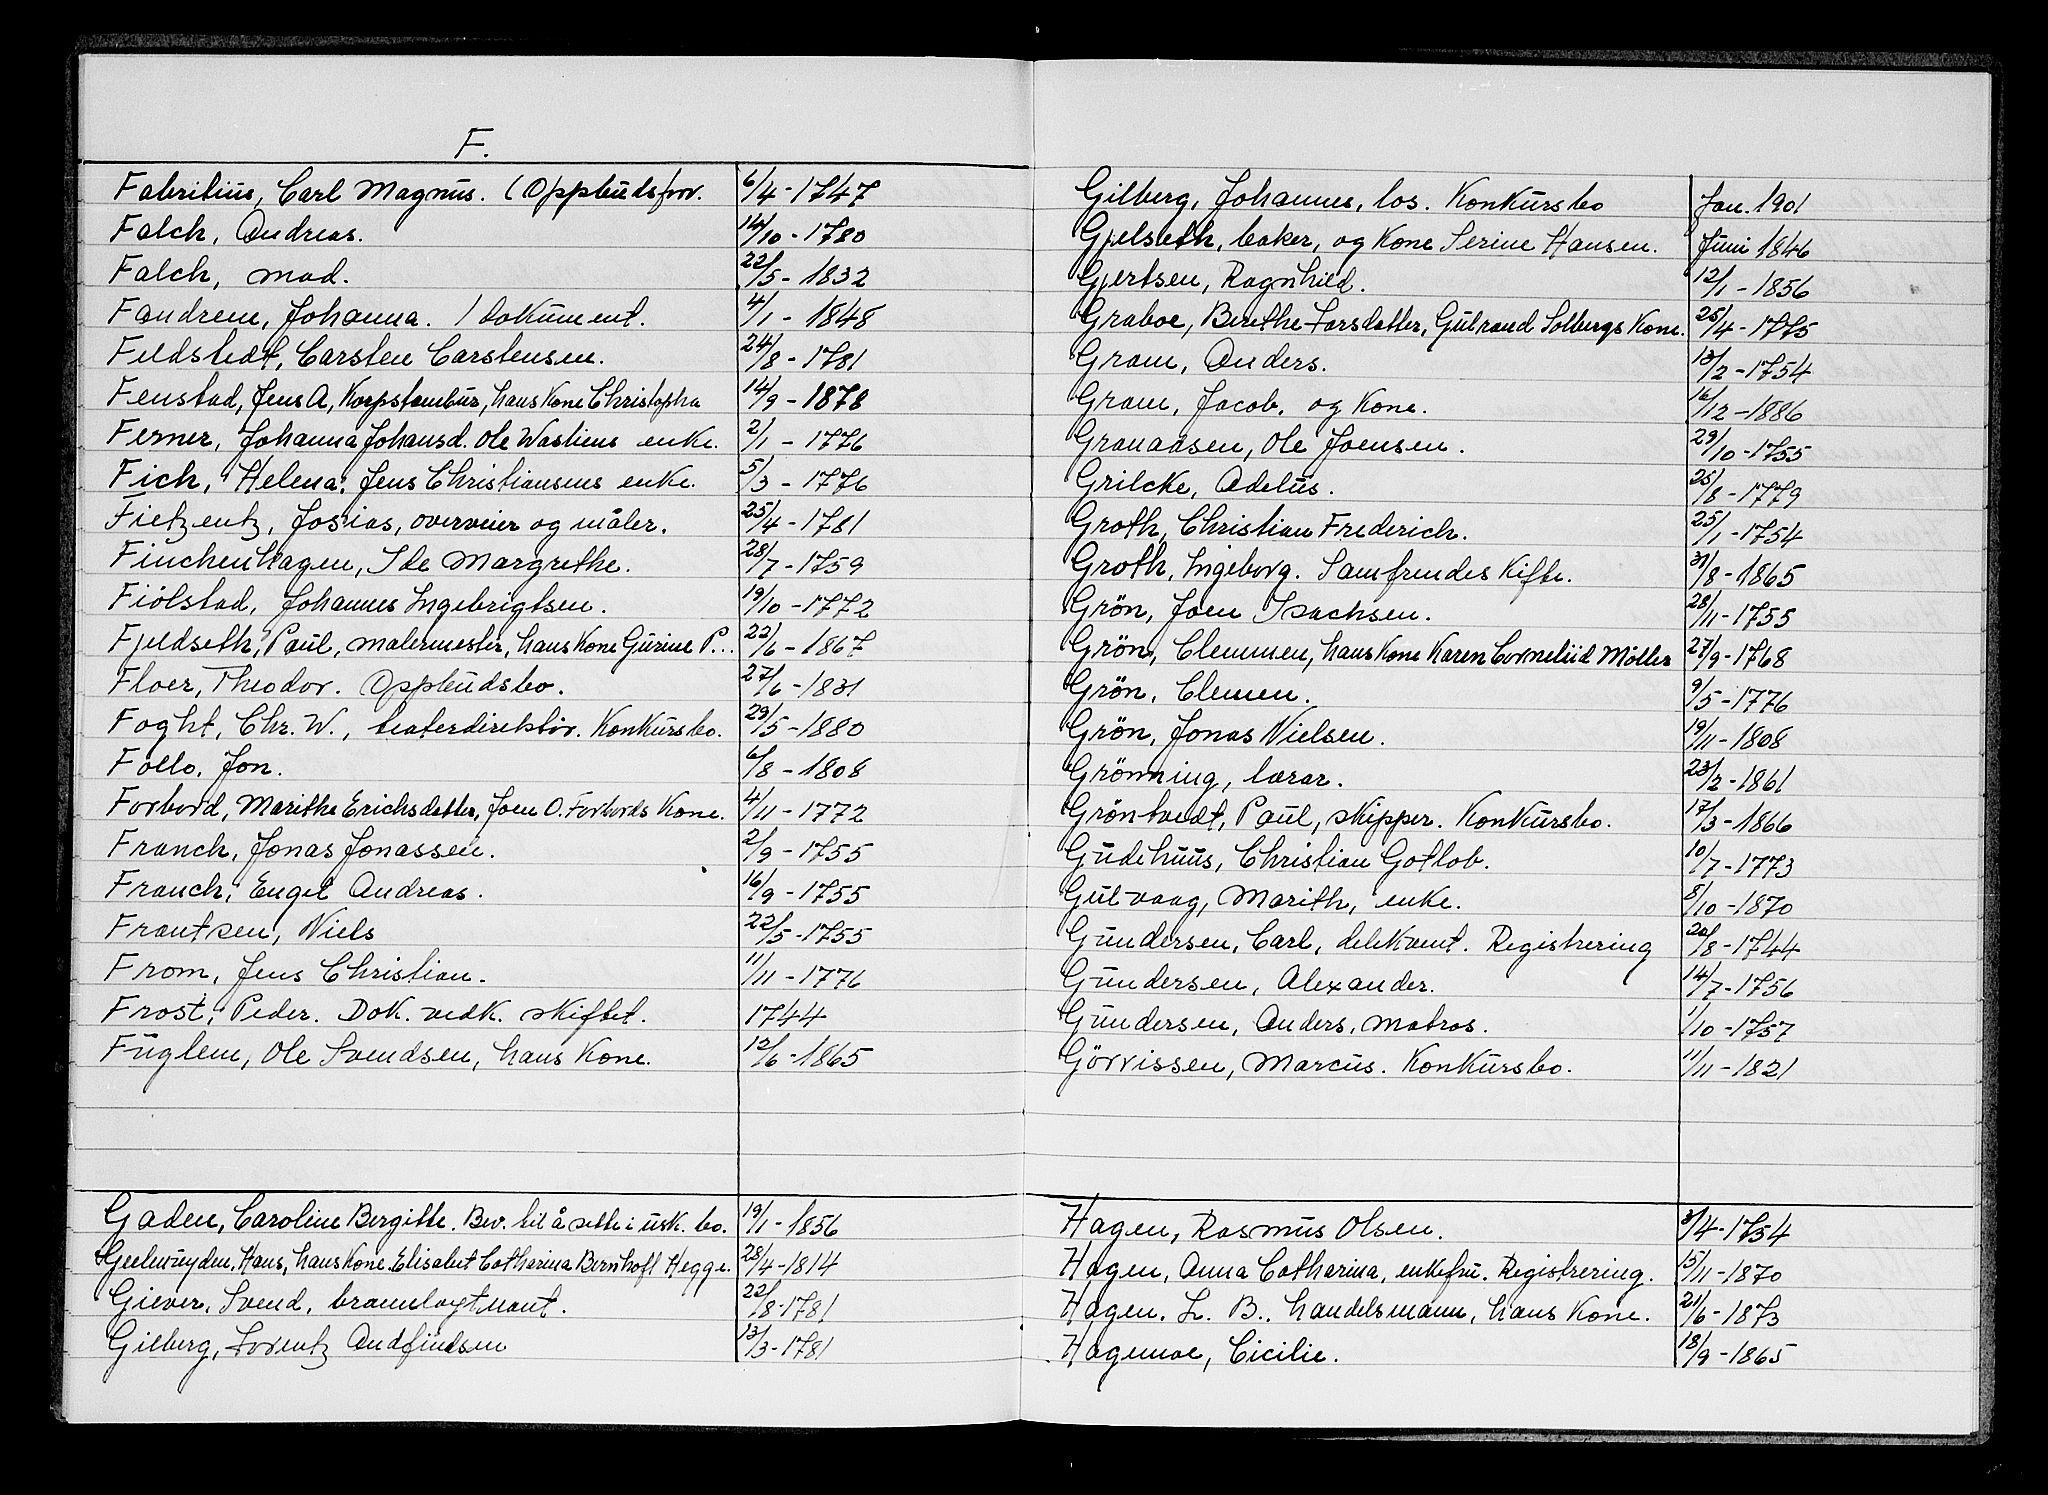 F.
Fabritius, Carl Magnus. (Oppbudsforr. 6/4-1747
Falch, Andreas. 14/10-1780
Falch, mad. 22/5-1832
Fandrem, Johanna. 1 dokument. 4/1-1848
Feldstedt, Carsten Carstensen. 24/8-1781
Fenstad, Jens A, Korpstambur, hans Kone Christopha 14/9-1878
Ferner, Johanna Johansd. Ole Wastiens enke. 2/1-1776
Fich, Helena, Jens Christiansens enke. 5/3-1776
Fietzentz, Josias, overveier og måler. 25/4-1781
Finchenhagen, Ide Margrethe. 28/7-1759
Fiölstad, Johannes Ingebrigtsen. 19/10-1772
Fjeldseth, Paul, malermester, hans Kone Gurine P... 22/6-1867
Floer, Theodor. Oppbudsbo. 27/6-1831
Foght, Chr. W., teaterdirektör. Konkursbo. 29/5-1880
Follo, Jon. 6/8-1808
Forbord, Marithe Erichsdatter, Joen O. Forbords Kone. 4/11-1772
Franch, Jonas Jonassen. 2/9-1755
Franch, Engel Andreas. 16/9-1755
Frantzen, Niels 22/5-1755
From, Jens Christian. 11/11-1776
Frost, Peder. Dok. vedk. skiftet. 1744
Fuglem, Ole Svendsen, hans Kone. 12/6-1865
Gaden, Caroline Bergitte. Bev. til å sitte i usk. bo. 19/1-1856
Geelmuyden, Hans, hans Kone Elisabet Catharina Bernhoft Hegge. 28/4-1814
Giever, Svend, brannlagtnant. 22/8-1781
Gilberg, Lorentz Andfindsen 13/3-1781
Gilberg, Johannes, los. Konkursbo Jan. 1901
Gjelseth, baker, og Kone Serine Hansen. Juni 1846
Gjertsen, Ragnhild. 12/1-1856
Graboe, Berethe Larsdatter, Gulrand Solbergs Kone. 25/4-1775
Gram, Anders. 13/2-1754
Gram, Jacob, og Kone. 16/12-1886
Granaasen, Ole Joensen. 29/10-1755
Grilcke, Adelus. 25/8-1779
Groth, Christian Frederich. 25/1-1754
Groth, Ingeborg. Samfrendeskifte. 31/8-1865
Grön, Joen Isachsen. 28/11-1755
Grön, Clemmen, hans Kone Karen Corneliid Möller 27/9-1768
Grön, Clemen. 9/5-1776
Grön, Jonas Nielsen. 19/11-1808
Grönning, lærar. 23/2-1861
Gröntvedt, Paul, skipper. Konkursbo. 17/3-1866
Gudehuus, Christian Gotlob. 10/7-1773
Gulvaag, Marith, enke. 8/10-1870
Gundersen, Carl, delekvent. Registrering 20/8-1744
Gundersen, Alexander. 14/7-1756
Gundersen, Anders, matros. 1/10-1757
Görvissen, Marcus. Konkursbo. 11/11-1821
Hagen, Rasmus Olsen. 3/4-1754
Hagen, Anna Catharina, enkefru. Registrering. 15/11-1870
Hagen. L. B., handelsmann, hans Kone. 21/6-1873
Hagemoe, Cicilie. 18/9-1865